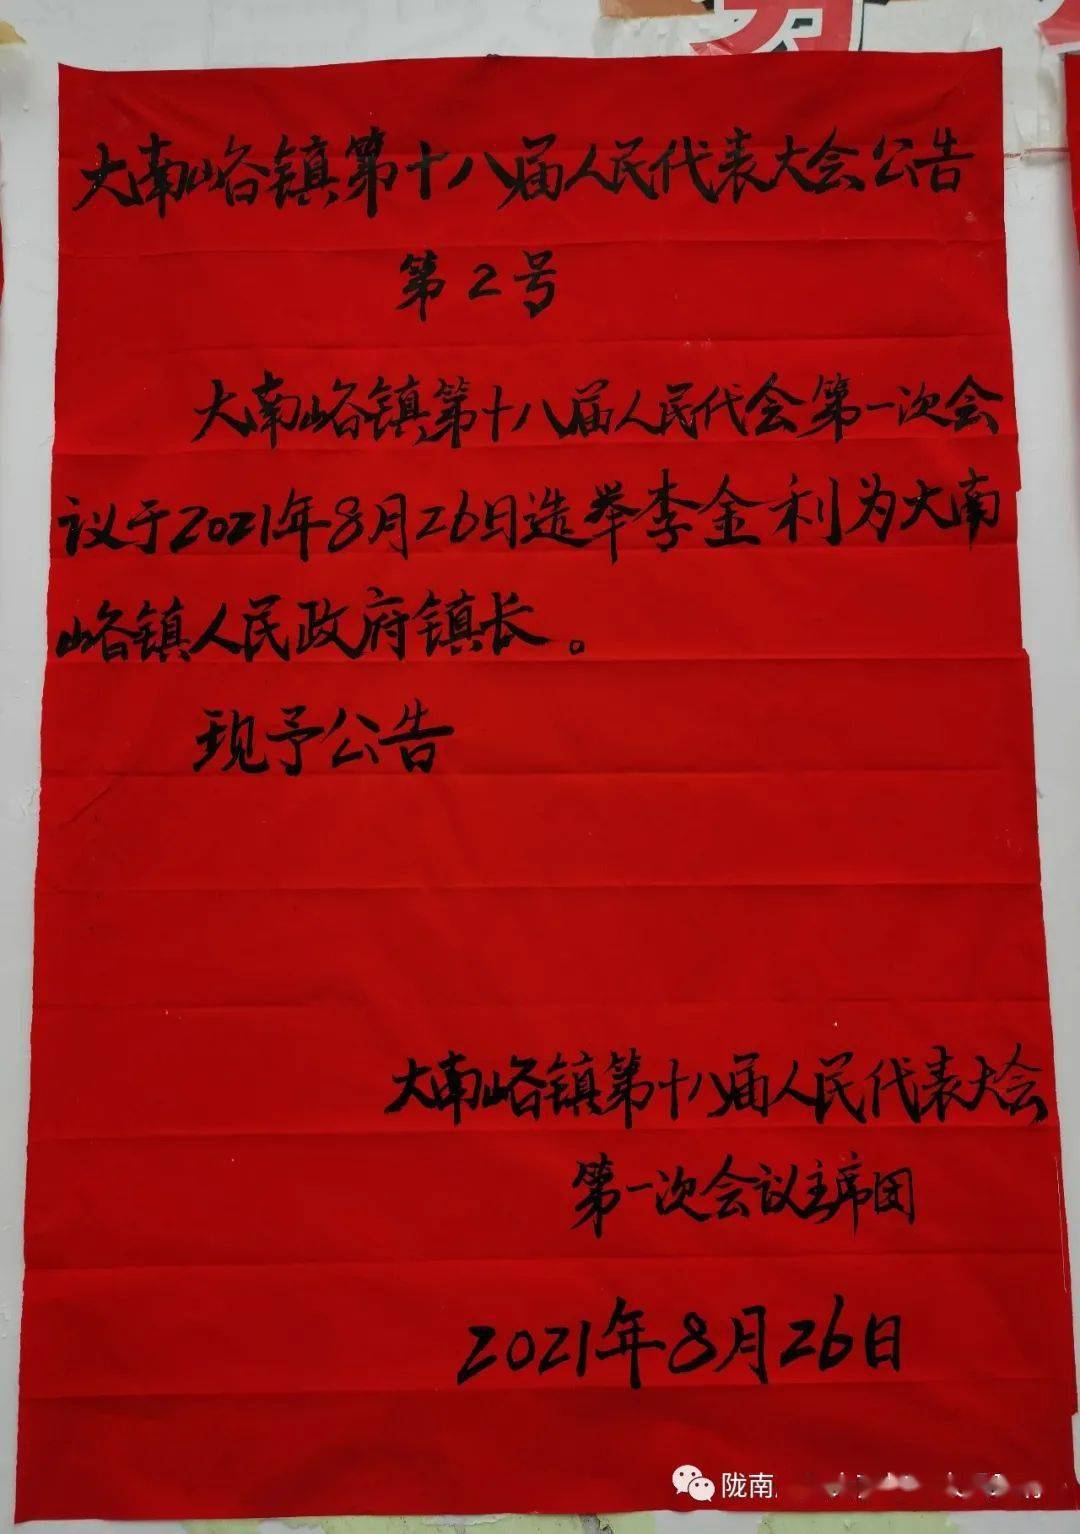 大南峪镇第十八届人民代表大会公告
第2号
大南峪镇第十八届人民代会第一次会
议于2021年8月26日选举李金利为大南
峪镇人民政府镇长。
现予公告
大南峪镇第十八届人民代表大会
第一次会议主席团
2021年8月26日
陇南